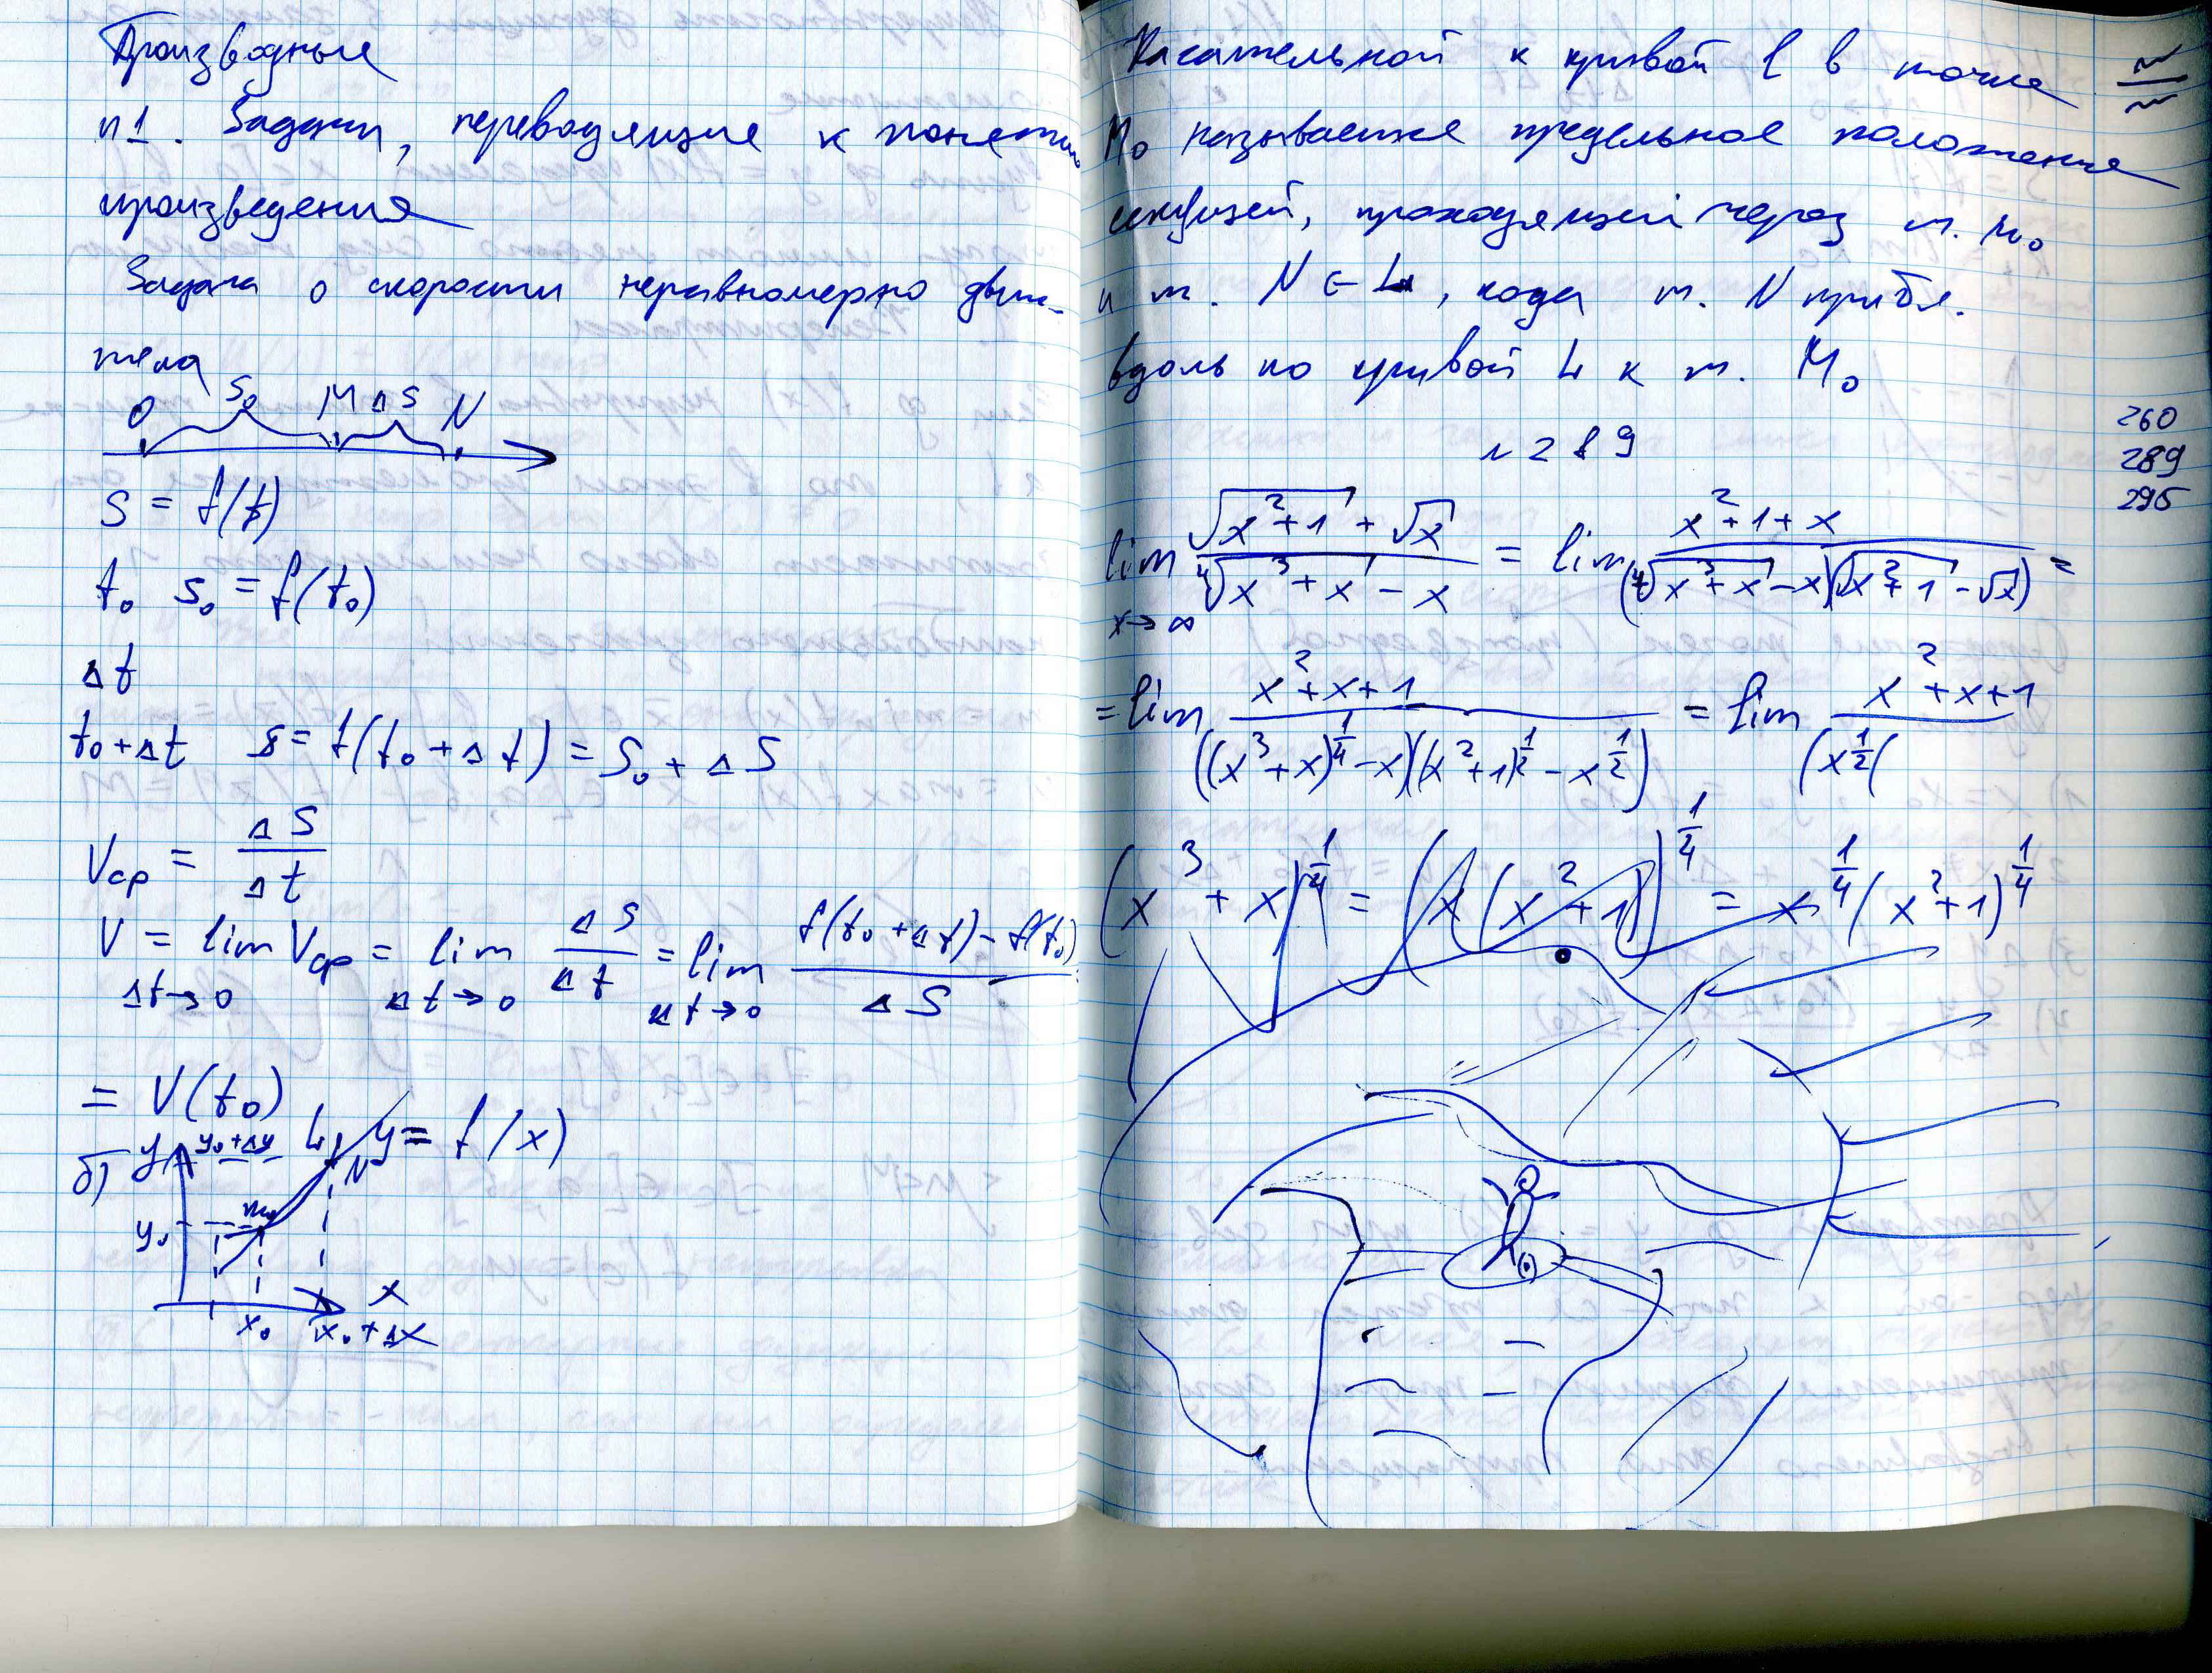 Производные
п1. Задачи, переводящие к понятию
произведения
Задача о скорости неравномерно движ.
тела
O S₀ M ΔS N
S = f(t)
t₀ S₀ = f(t₀)
Δt
t₀+Δt S = f(t₀ + Δt) = S₀ + ΔS
Vср = ΔS/Δt
V = lim Vср = lim ΔS/Δt = lim (f(t₀+Δt) - f(t₀))/ΔS
Δt→0 Δt→0 Δt→0
= V(t₀)
б) y y₀+Δy L y = f(x)
N
y₀ M₀
x
x₀ x₀+Δx
Касательной к кривой l в точке
M₀ называется предельное положение
секущей, проходящей через т. M₀
и т. N ∈ L, когда т. N прибл.
вдоль по кривой L к т. M₀
260
289
295
№289
lim (√(x²+1) + √x)/(⁴√(x³+x) - x) = lim (x²+1+x)/((⁴√(x³+x) - x)(√(x²+1) - √x)) =
x→∞
= lim (x²+x+1)/(((x³+x)^(1/4) - x)((x²+1)^(1/2) - x^(1/2))) = lim (x²+x+1)/(x^(1/2)(
(x³+x)^(1/4) = (x(x²+1))^(1/4) = x^(1/4)(x²+1)^(1/4)